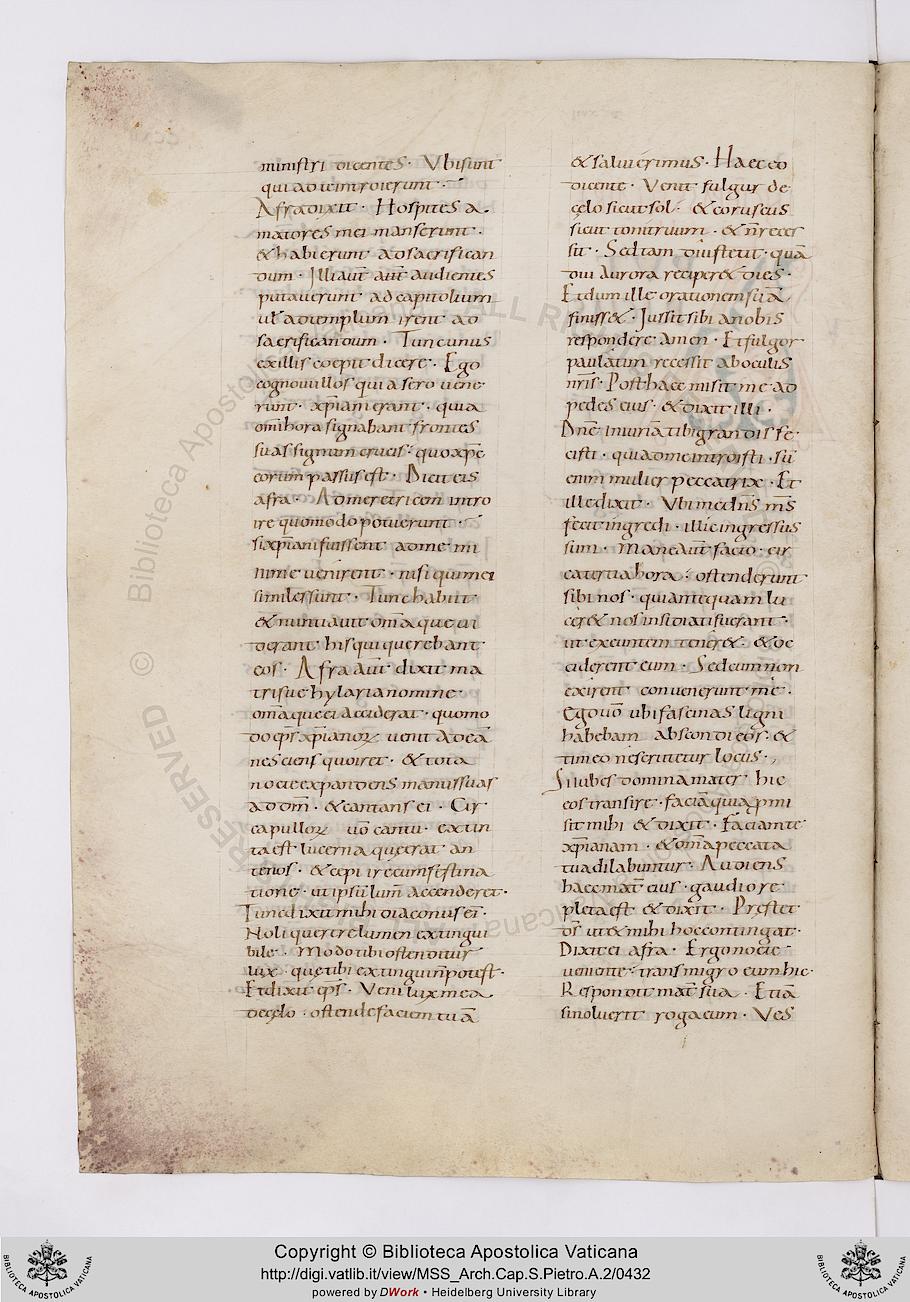 ministri dicentes · Vbi sunt
qui ad te introierunt ·
Afra dixit · Hospites a·
matores mei manserunt ·
& habierunt ad sacrifican
dum · Illi aut̄ audientes
putauerunt ad capitolium
ul̄ ad templum irent ad
sacrificandum · Tunc unus
ex illis coepit dicere · Ego
cognoui illos qui a sero uene
runt · xp̄iani erant · quia
om̄i hora signabant frontes
suas signum crucis · quo xp̄c
eorum passus est · Dicit eis
afra · Ad meretricem intro
ire quomodo potuerunt ·
si xp̄iani fuissent ad me mi
nime uenirent · nisi qui mei
similes sunt · Tunc habiit
& nuntiauit om̄a que ui
derant his qui querebant
eos · Afra aut̄ dixit ma
tri sue hylaria nomine
om̄a que ei acciderat · quomo
do ep̄s xp̄ianoꝝ uenit ad eā
nesciens quo iret · & tota
nocte expandens manus suas
ad dm̄ · & cantans ei · Cir
ca pulloꝝ uō cantū · extin
ta est lucerna que erat an
te nos · & cępi ire cum festina
tione · ut ipsū lum̄ accenderet ·
Tunc dixit mihi diaconus ei᷒ ·
Noli querere lumen extingui
bile · Modo tibi ostenditur
lux · quę tibi extingui n̄ potest ·
Et dixit ep̄s · Veni lux mea
de cęlo · ostende faciem tuā
& salui erimus · Haec eo
dicente · Venit fulgur de
cęlo sicut sol · & coruscus
sicut tonitruum · & n̄ reces
sit · Sed tam diu stetit · quā
diu aurora reciper& dies ·
Et dum ille orationem suā
finiss& · Iussit sibi a nobis
respondere amen · Et fulgor
paulatim recessit ab oculis
nr̄is · Post haec misit me ad
pedes eius · & dixit illi ·
Dn̄e iniuriā tibi grandis fe
cisti · quia ad me introisti · sū
enim mulier peccatrix · Et
ille dixit · Vbi me dn̄s m̄s
fecit ingredi · illic ingressus
sum · Mane aut̄ facto · cir
ca tertia hora · ostenderunt
sibi nos · qui antequam lu
cer& nos insidiati fuerant ·
ut exeuntem tener& · & oc
ciderent eum · Sed cum non
exirent conuenerunt me ·
Ego uō ubi fascinas ligni
habebam abscondi eos · &
timeo ne seritetur locus ·
Si iubes domina mater hic
eos transire · faciā qua ꝓmi
sit mihi & dixit · Faciam te
xp̄ianam · & om̄a peccata
tua dilabuntur · Audiens
haec mat̄ eius · gaudio re
pleta est & dixit · Pręstet
ds̄ ut & mihi hoc contingat ·
Dixit ei afra · Ergo nocte
ueniente · transmigro eum hic ·
Respondit mat̄ sua · Etiā
si noluerit roga eum · Ves
Copyright © Biblioteca Apostolica Vaticana
http://digi.vatlib.it/view/MSS_Arch.Cap.S.Pietro.A.2/0432
powered by DWork • Heidelberg University Library